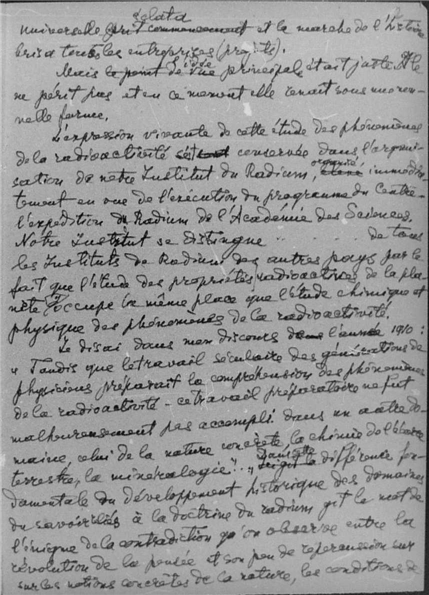 éclata
universelle prit commencement et la marche de l'histoire
brisa toutes les entreprises (projets).
Mais le point de vue l'idée principale était juste. Elle
ne périt pas et en ce moment elle renaît sous une nou-
velle forme.
L'expression vivante de cette étude des phénomènes
de la radioactivité est conservée dans l'organi-
sation de notre Institut du Radium, organisé immédia-
tement en vue de l'exécution du programme du Centre
l'expédition du Radium de l'Académie des Sciences.
Notre Institut se distingue . . . . . . . de tous
les Instituts de Radium des autres pays par le
fait que l'étude des propriétés radioactives de la pla-
nète occupe la même place que l'étude chimique et
physique des phénomènes de la radioactivité.
Je disai dans mon discours dans l'année 1910 :
„Tandis que le travail séculaire des générations de
physiciens préparait la compréhension des phénomènes
de la radioactivité - ce travail préparatoire ne fut
malheureusement pas accompli dans un autre do-
maine, celui de la nature concrète, la chimie de l'écorce
terrestre, la minéralogie"... „Dans cette la différence fon-
damentale du développement historique des domaines
du savoir liés à la doctrine du radium gît le mot de
l'énigme de la contradiction qu'on observe entre la
révolution de la pensée et son peu de répercussion sur
sur les notions concrètes de la nature, les conditions de